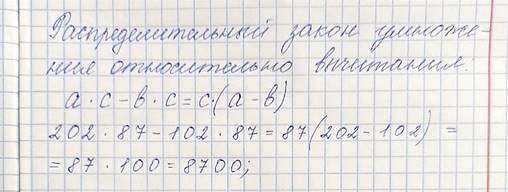 Распределительный закон умноже-
ния относительно вычитания:
а · с – в · с = с · (а – в)
202 · 87 – 102 · 87 = 87 (202 – 102) =
= 87 · 100 = 8700;